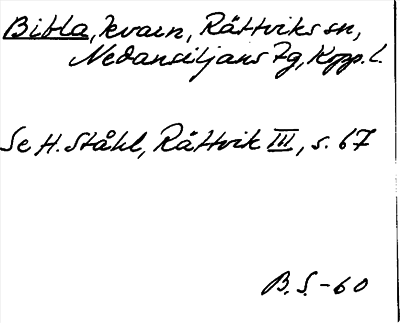 Bibla, kvarn, Rättviks sn,
Nedansiljans fg, Kopp. l.
Se H. Ståhl, Rättvik III, s. 67
B.S.-60